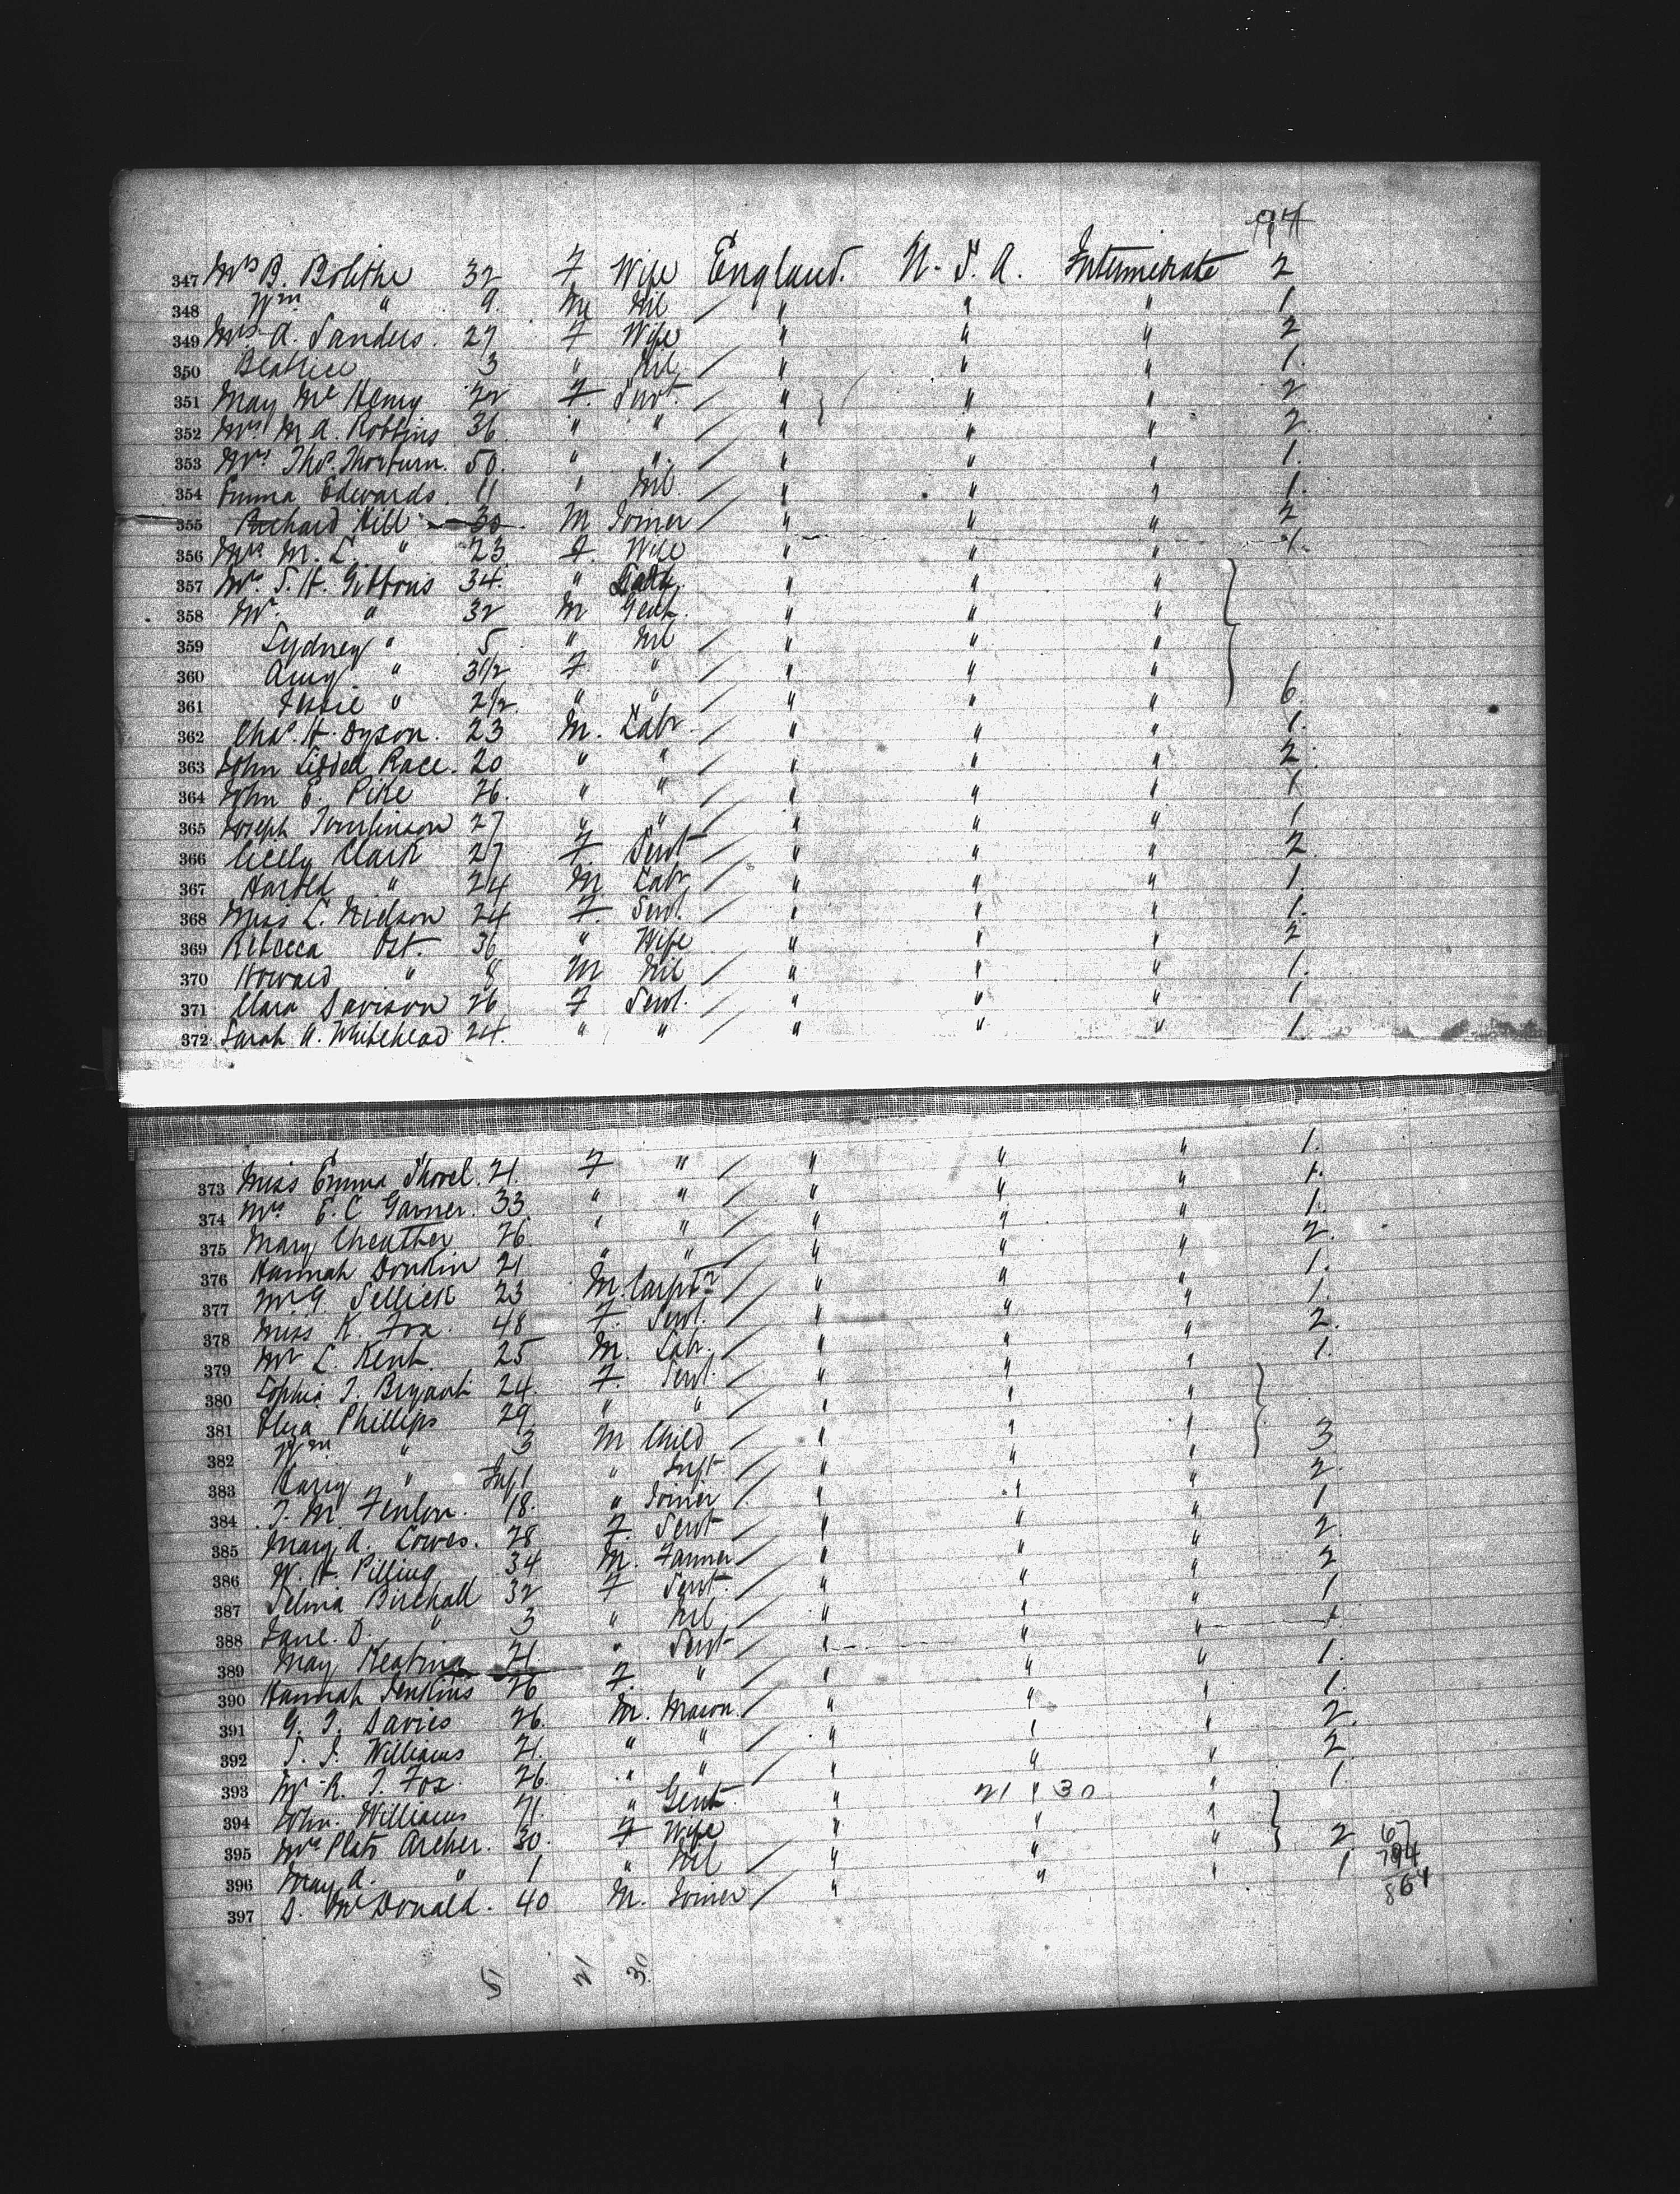 347 Mrs B. Bolithe 32 F Wife England. U. S. A. Intermediate 2
348 Wm " 9. M Nil " " " 1
349 Mrs A. Sanders. 27 F Wife " " " 2
350 Beatrice 3 " Nil " " " 1.
351 May Mc Henry 22 F. Servt. " " " 2
352 Mrs M. A. Robbins 36 " " " " " 2
353 Mrs Thos. Thorburn. 50. " " " " " 1.
354 Emma Edwards. 11 " Nil " " " 1.
355 Richard Hill 30 M Joiner " " " 2
356 Mrs M. L. " 23 F. Wife " " " 1.
357 Mrs. S. H. Gibbons 34. " " " "
358 Mr. " 32 M Gent. " " "
359 Sydney " 5 " Nil " " "
360 Amy " 3 1/2 F " " " "
361 Jessie " 2 1/2. " " " " " 6
362 Chas. H. Dyson. 23 M. Labr " " " 1.
363 John Liddell Race. 20 " " " " " 2
364 John E. Pike 26. " " " " " 1
365 Joseph Tomlinson 27 " " " " " 1
366 Cicely Clark 27 F Servt " " " 2
367 Harold " 24 M Labr " " " 1.
368 Miss L. Nielson 24 F. Servt. " " " 1.
369 Rebecca Ost. 36 " Wife " " " 2
370 Howard " 8 M Nil " " " 1.
371 Clara Davison 26 F Servt. " " " 1
372 Sarah A. Whitehead 24. " " " " " 1.
373 Miss Emma Shovel. 21. F " " " " 1.
374 Mrs E. C Garner. 33. " " " " " 1.
375 Mary Cheather 26. " " " " " 1.
376 Hannah Donkin 21 " " " " " 2.
377 Mr G. Sellick 23 M. Carptr " " " 1.
378 Miss K. Fox. 48 F. Servt. " " " 1.
379 Mr L. Kent. 25 M. Labr. " " " 2.
380 Sophia J. Bryant 24. F. Servt. " " " 1.
381 Eliza Phillips 29 " " " " "
382 Wm " 3 M Child " " "
383 Harry " Inf 1 " Inft " " " 3
384 J. M. Fenlon. 18. " Joiner " " " 2.
385 Mary A. Cowes. 28 F. Servt " " " 1
386 W. H. Pilling 34 M. Farmer " " " 2.
387 Selina Birchall 32 F Servt. " " " 2
388 Jane. D. " 3 " Nil " " " 1
389 May Keating 21. " Servt " " " 1.
390 Hannah Jenkins 26 F. " " " " 1.
391 G. J. Davies 26. M. Mason. " " " 1.
392 S. J. Williams 21. " " " " " 2.
393 Mr R. J. Fox. 26. " " " " " 2
394 John Williams 71. " Gent. " 21 " 30 " 1.
395 Mrs Plats Archer. 30. F Wife " " "
396 May A. " 1 " Nil " " " 2 67
397 D. Mc Donald. 40 M. Joiner " " " 1 794
861
51 21 30